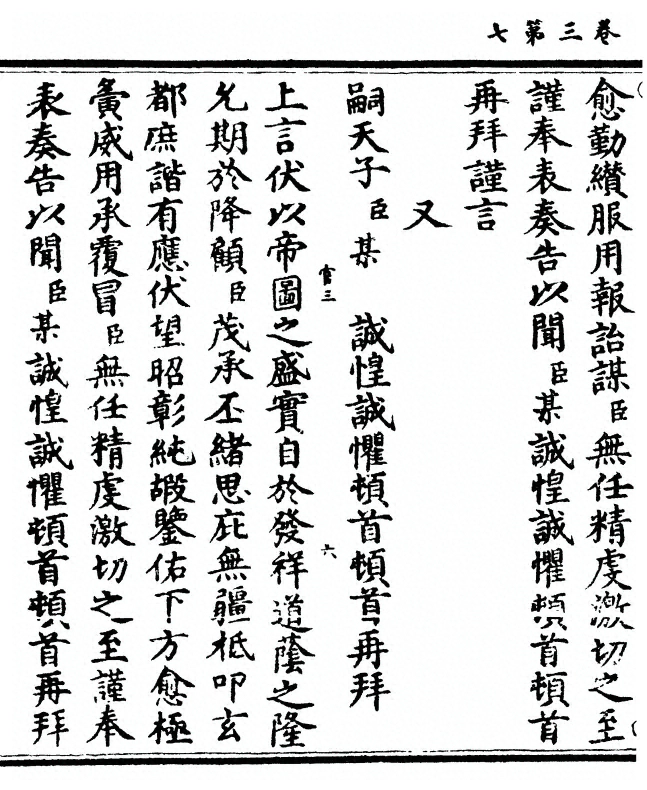 卷三第七
愈勤纘服用報詒謀臣無任精虔激切之至
謹奉表奏告以聞臣某誠惶誠懼頓首頓首
再拜謹言
又
嗣天子臣某 誠惶誠懼頓首頓首再拜
官三 六
上言伏以帝圖之盛實自於發祥道蔭之隆
允期於降顧臣茂承丕緒思庇無疆祗叩玄
都庶諧有應伏望昭彰純嘏鑒佑下方愈極
夤威用承覆冒臣無任精虔激切之至謹奉
表奏告以聞臣某誠惶誠懼頓首頓首再拜